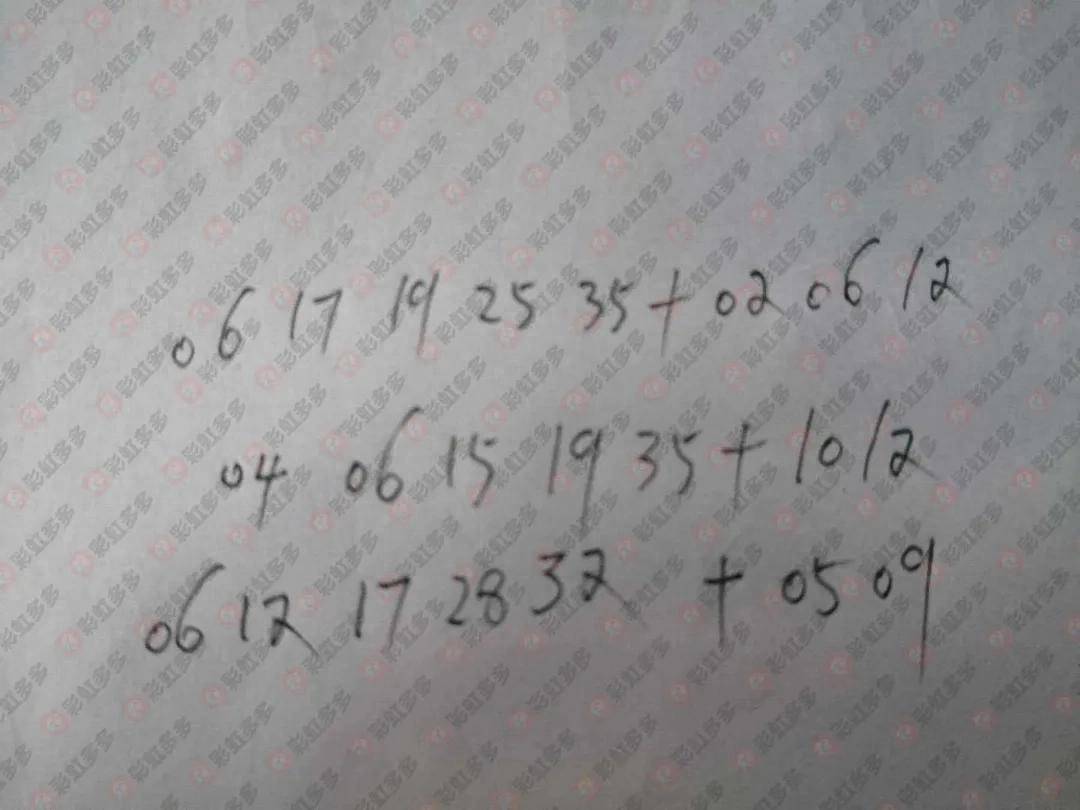 06 17 19 25 35 + 02 06 12
04 06 15 19 35 + 10 12
06 12 17 28 32 + 05 09
彩虹多多